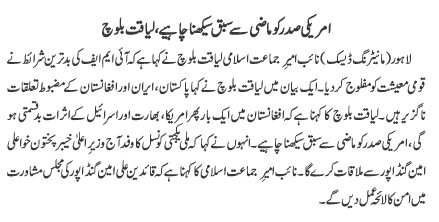 امریکی صدر کو ماضی سے سبق سیکھنا چاہیے، لیاقت بلوچ
لاہور (مانیٹرنگ ڈیسک) نائب امیر جماعت اسلامی لیاقت بلوچ نے کہا ہے کہ آئی ایم ایف کی بدترین شرائط نے
قومی معیشت کو مفلوج کر دیا۔ ایک بیان میں لیاقت بلوچ نے کہا پاکستان، ایران اور افغانستان کے مضبوط تعلقات
ناگزیر ہیں۔ لیاقت بلوچ کا کہنا ہے کہ افغانستان میں ایک بار پھر امریکا، بھارت اور اسرائیل کے اثرات بدقسمتی ہو
گی، امریکی صدر کو ماضی سے سبق سیکھنا چاہیے۔ انہوں نے کہا کہ ملی یکجہتی کونسل کا وفد آج وزیراعلیٰ خیبر پختون خوا علی
امین گنڈا پور سے ملاقات کرے گا۔ نائب امیر جماعت اسلامی کا کہنا ہے کہ قائدین علی امین گنڈا پور کی مجلس مشاورت
میں امن کا لائحہ عمل دیں گے۔